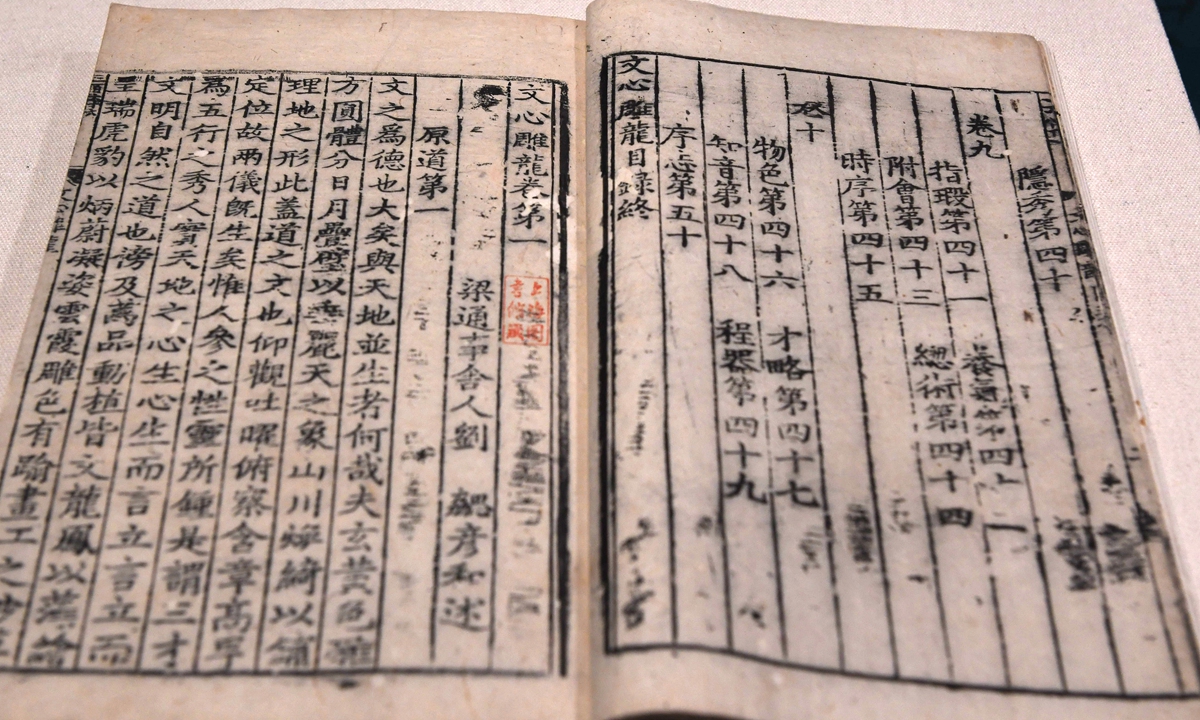 隱秀第四十
卷九
指瑕第四十一　養氣第四十二
附會第四十三　總術第四十四
時序第四十五
卷十
物色第四十六　才略第四十七
知音第四十八　程器第四十九
序志第五十
文心雕龍目錄終
文心雕龍卷第一
上海圖書館藏
梁通事舍人劉　勰彥和述
原道第一
文之爲德也大矣與天地並生者何哉夫玄黃色雜
方圓體分日月疊璧以垂麗天之象山川煥綺以鋪
理地之形此蓋道之文也仰觀吐曜俯察含章高卑
定位故兩儀旣生矣惟人參之性靈所鍾是謂三才
爲五行之秀人實天地之心生心生而言立言立而
文明自然之道也滂及萬品動植皆文龍鳳以藻繪
呈瑞虎豹以炳蔚凝姿雲霞雕色有踰畫工之妙